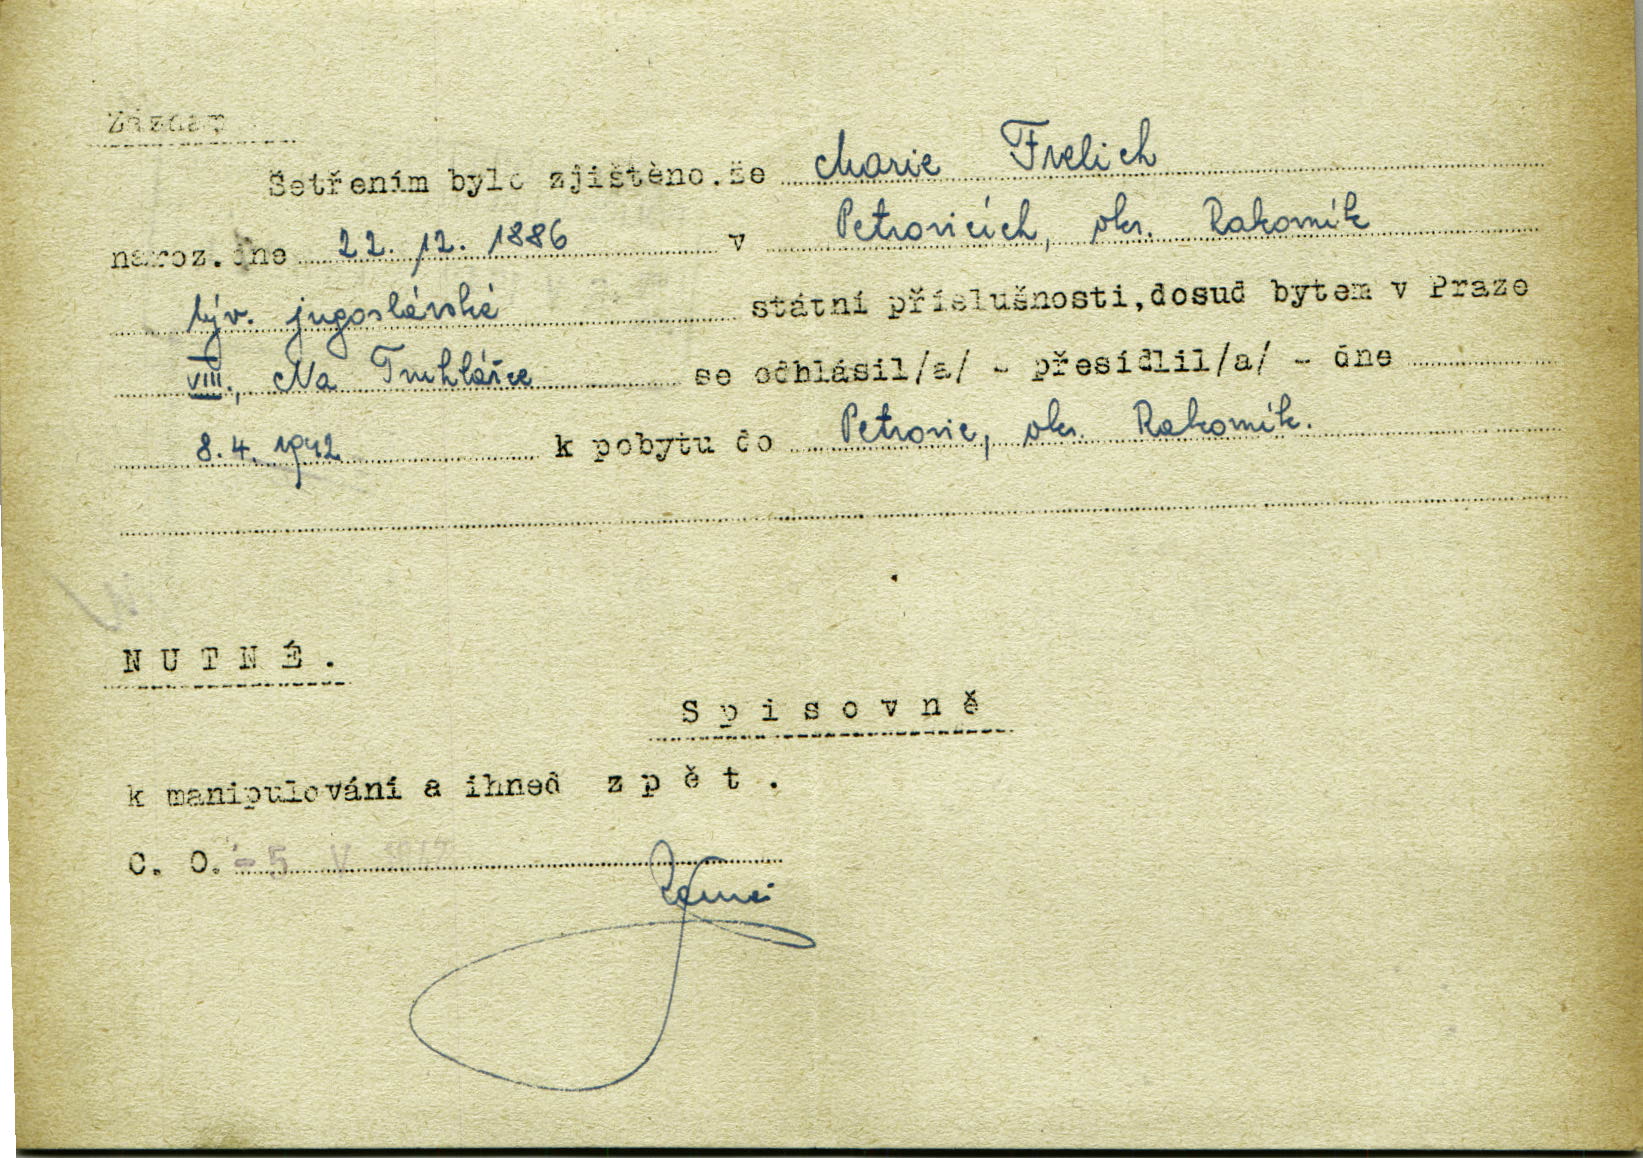 Záznam
Šetřením bylo zjištěno.že Marie Frelich
naroz.dne 22. 12. 1886 v Petrovicích, okr. Rakovník
býv. jugoslávské státní příslušnosti,dosud bytem v Praze
VIII., Na Truhlářce se odhlásil/a/ - přesídlil/a/ - dne
8. 4. 1942 k pobytu do Petrovic, okr. Rakovník.
NUTNÉ.
Spisovně
k manipulování a ihned zpět.
C. O. -5 V 1942